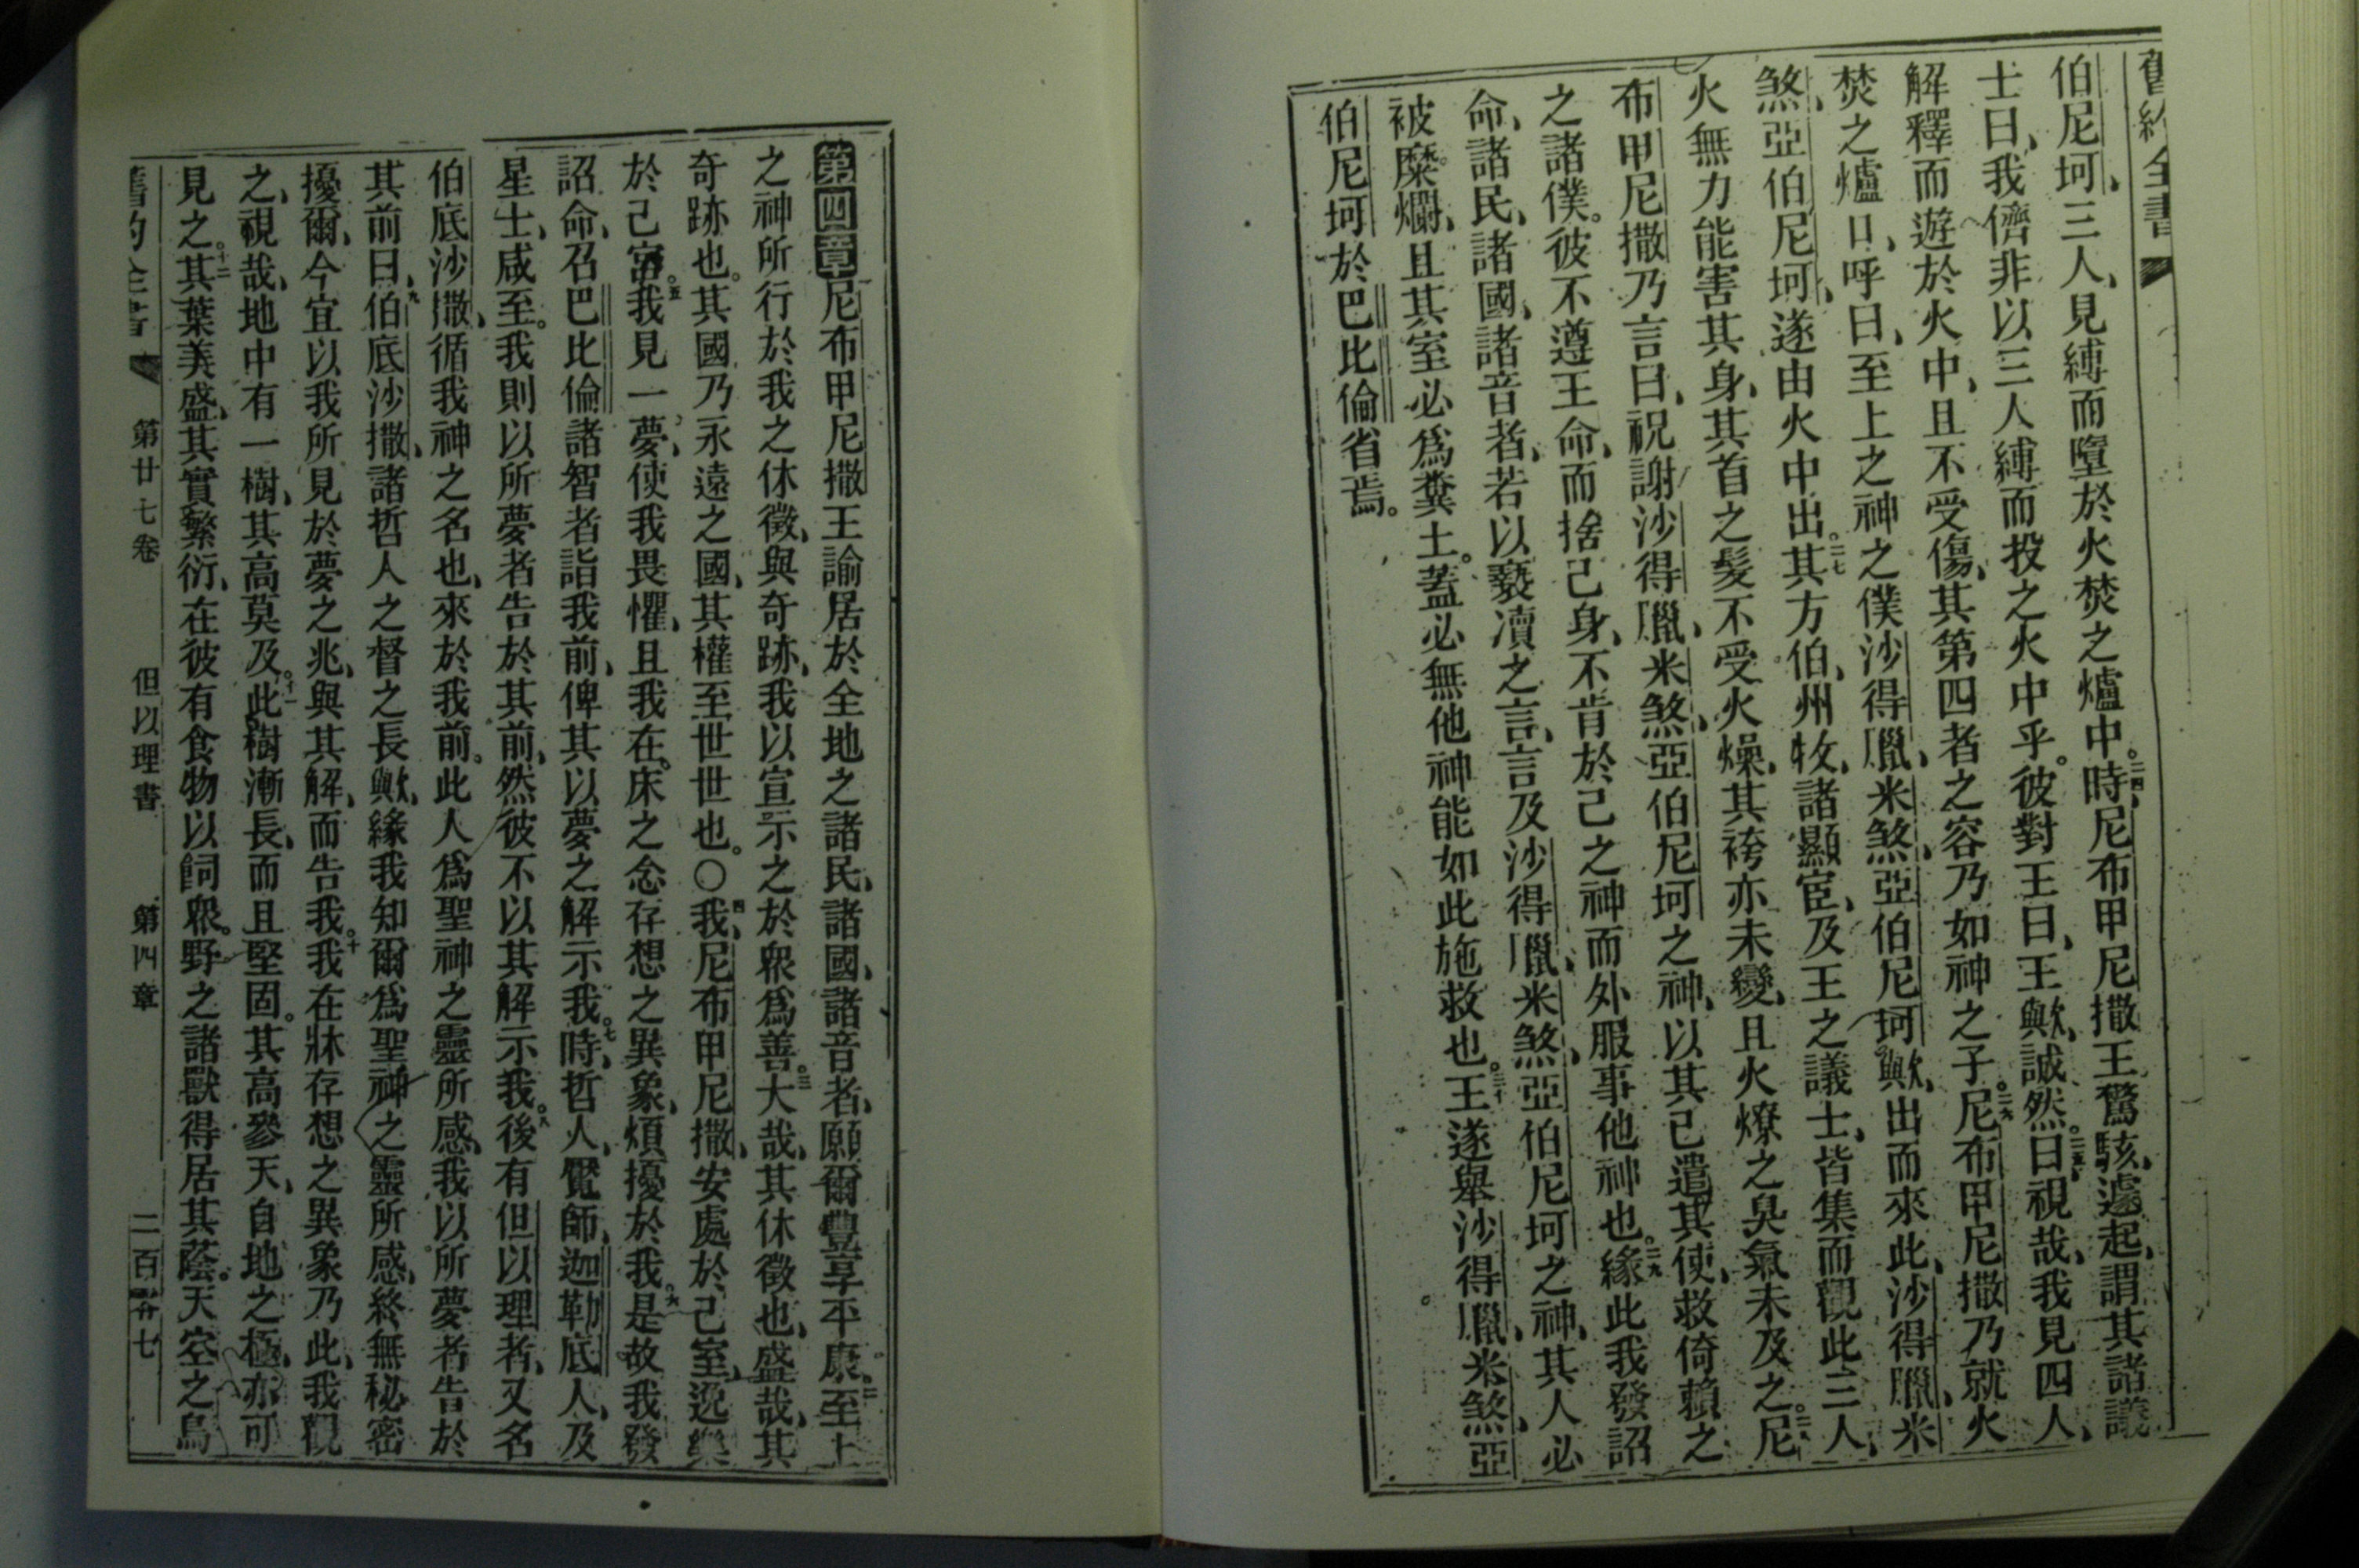 舊約全書
伯尼坷、三人、見縛而墮於火焚之爐中。二四時、尼布甲尼撒王驚駭、遽起、謂其諸議
士曰、我儕非以三人縛而投之火中乎。彼對王曰、王歟、誠然。二五曰、視哉、我見四人、
解釋而遊於火中、且不受傷、其第四者之容乃如神之子。二六尼布甲尼撒乃就火
焚之爐口、呼曰、至上之神之僕沙得臘、米煞、亞伯尼坷歟、出而來此、沙得臘、米
煞、亞伯尼坷、遂由火中出。二七其方伯、州牧、諸顯宦、及王之議士、皆集而觀此三人、
火無力能害其身、其首之髮不受火燥、其袴亦未變、且火燎之臭氣未及之。二八尼
布甲尼撒乃言曰、祝謝沙得臘、米煞、亞伯尼坷之神、以其已遣其使、救倚賴之
之諸僕。彼不遵王命、而捨己身、不肯於己之神而外服事他神也。二九緣此我發詔
命、諸民、諸國、諸音者、若以褻瀆之言、言及沙得臘、米煞、亞伯尼坷之神、其人必
被糜爛、且其室必為糞土。蓋必無他神能如此施救也。三十王遂舉沙得臘、米煞、亞
伯尼坷於巴比倫省焉。
第四章尼布甲尼撒王諭居於全地之諸民、諸國、諸音者、願爾豐享平康。二至上
之神所行於我之休徵、與奇跡、我以宣示之於眾為善。三大哉、其休徵也、盛哉、其
奇跡也。其國乃永遠之國、其權至世世也。〇四我、尼布甲尼撒、安處於己室、逸樂
於己宮。五我見一夢、使我畏懼、且我在床之念存想之異象、煩擾於我。六是故我發
詔命、召巴比倫諸智者詣我前、俾其以夢之解示我。七時、哲人、覡師、迦勒底人、及
星士、咸至。我則以所夢者告於其前、然彼不以其解示我。八後有但以理者、又名
伯底沙撒、循我神之名也、來於我前。此人為聖神之靈所感、我以所夢者告於
其前曰、九伯底沙撒、諸哲人之督之長歟、緣我知爾為聖神之靈所感、終無秘密
擾爾、今宜以我所見於夢之兆、與其解、而告我。十我在牀存想之異象乃此、我觀
之、視哉、地中有一樹、其高莫及。十一此樹漸長、而且堅固。其高參天、自地之極、亦可
見之。十二其葉美盛、其實繁衍、在彼有食物以飼眾。野之諸獸得居其蔭。天空之鳥
舊約全書 第廿七卷 但以理書 第四章 二百零七